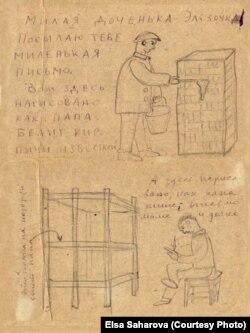 Милая доченька Элзочка
Посылаю тебе
миленькая
письмо.
Вот здесь
нарисовано
как папа
белит кир-
пичи известкой
А здесь нарисо-
вано, как папа
пишет письмо
маме и дочке
спит папа
Elsa Saharova (Courtesy Photo)